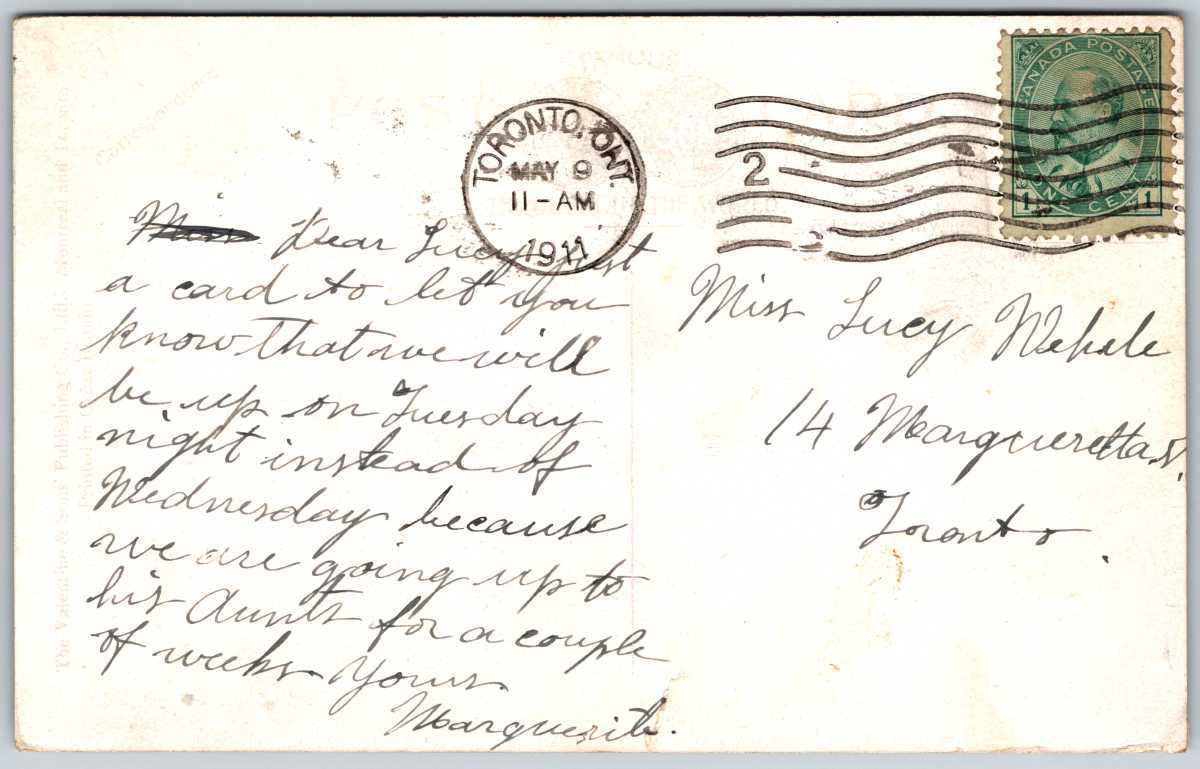 TORONTO, ONT.
MAY 9
11-AM
1911
2
CANADA POSTAGE
1 ONE CENT 1
FAMOUS
THE WORLD
Correspondence
The Valentine & Sons' Publishing Co., Ltd., Montreal and Toronto
Printed in Great Britain
Miss Dear Lucy just
a card to let you
know that we will
be up on Tuesday
night instead of
Wednesday because
we are going up to
his Aunts for a couple
of weeks Yours
Marguerite.
Miss Lucy
14 Margueretta St.
Toronto.